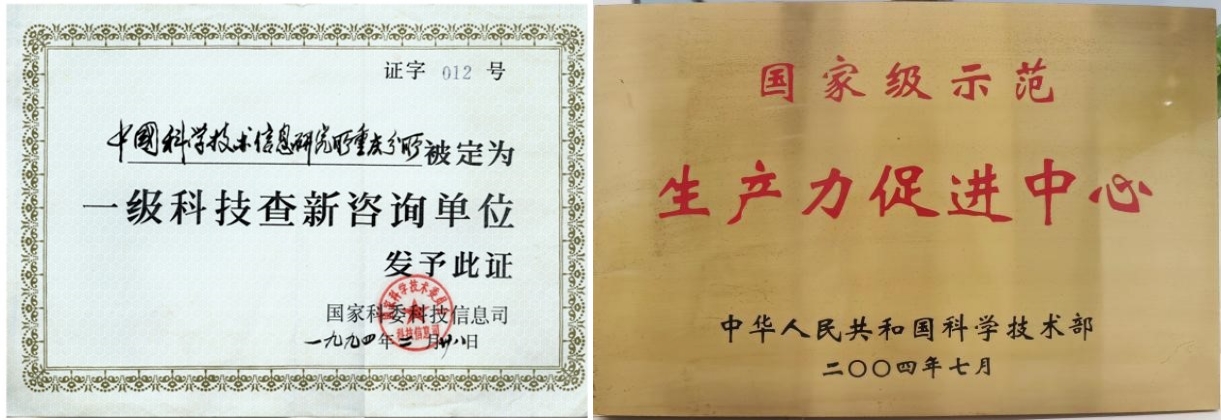 证字 012 号
中國科学技术信息研究所重庆分所被定为
一级科技查新咨询单位
发予此证
国家科委科技信息司
一九九四年二月廿八日
国家科学技术委员会
科技信息司
国家级示范
生产力促进中心
中华人民共和国科学技术部
二〇〇四年七月